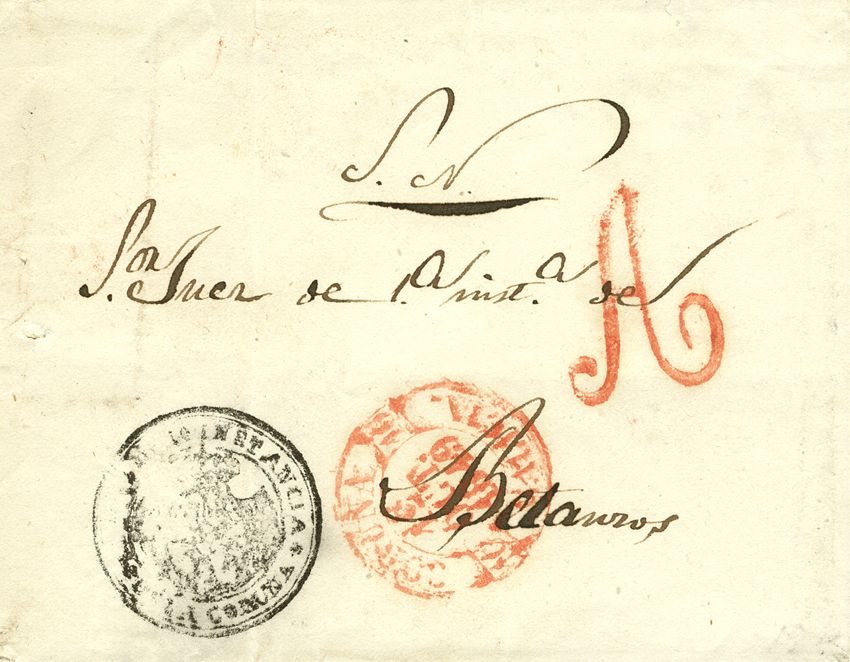 S. N.
S.or Juez de 1.a inst.a de
A
Betanzos
LA CORUÑA